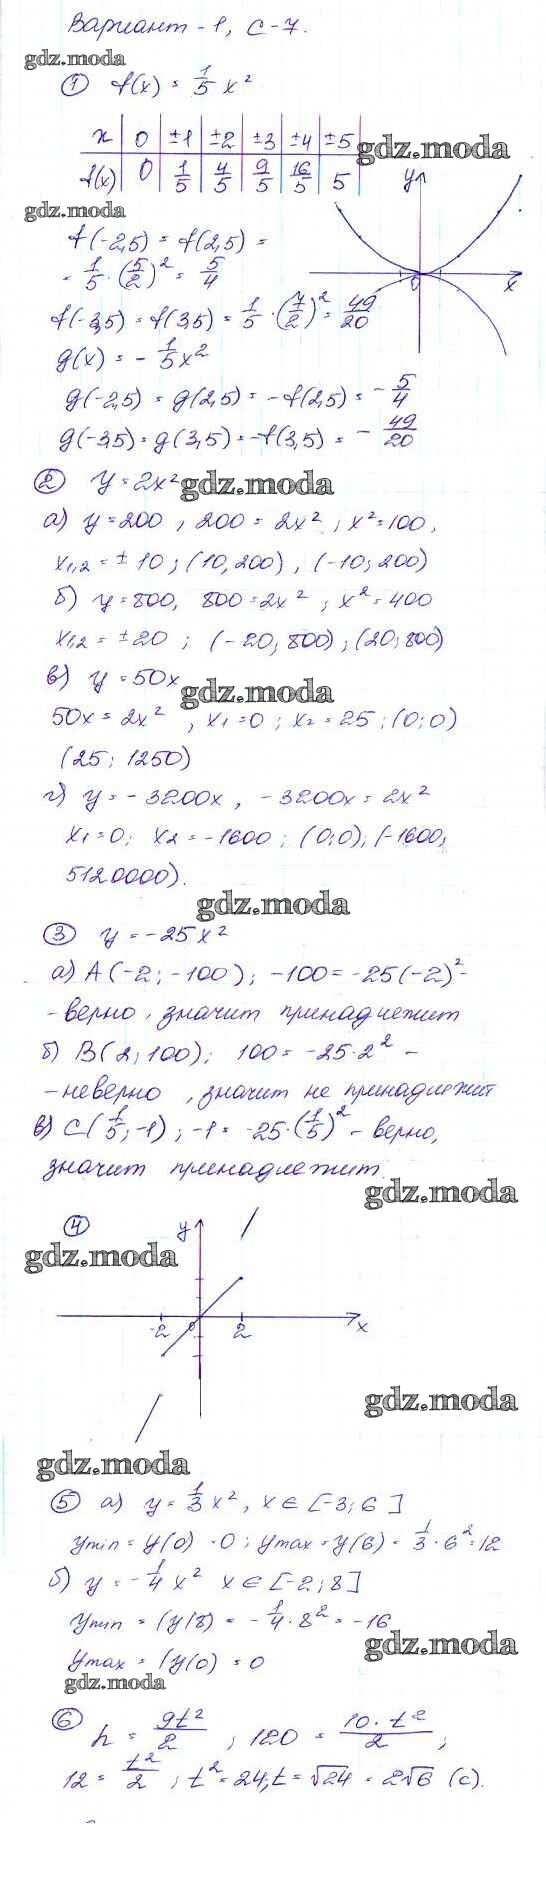 Вариант - 1, С-7.
gdz.moda
① f(x) = 1/5 x²
x | 0 | ±1 | ±2 | ±3 | ±4 | ±5
gdz.moda
f(x) | 0 | 1/5 | 4/5 | 9/5 | 16/5 | 5
y
gdz.moda
0 x
f(-2,5) = f(2,5) =
= 1/5 · (5/2)² = 5/4
f(-3,5) = f(3,5) = 1/5 · (7/2)² = 49/20
g(x) = - 1/5 x²
g(-2,5) = g(2,5) = -f(2,5) = - 5/4
g(-3,5) = g(3,5) = -f(3,5) = - 49/20
② y = 2x²
gdz.moda
а) y = 200 , 200 = 2x² ; x² = 100,
x1,2 = ± 10 ; (10, 200) , (-10; 200)
б) y = 800, 800 = 2x² ; x² = 400
x1,2 = ±20 ; (-20; 800) ; (20; 800)
в) y = 50x
gdz.moda
50x = 2x² , x1 = 0 ; x2 = 25 ; (0; 0)
(25; 1250)
г) y = -3200x , -3200x = 2x²
x1 = 0; x2 = -1600 ; (0; 0); (-1600;
5120000).
gdz.moda
③ y = -25x²
а) A(-2; -100); -100 = -25(-2)² -
- верно, значит принадлежит
б) B(2; 100); 100 = -25·2² -
- неверно, значит не принадлежит
в) C(1/5; -1) ; -1 = -25·(1/5)² - верно,
значит принадлежит.
gdz.moda
④ y
gdz.moda
-2 0 2 x
gdz.moda
gdz.moda
⑤ а) y = 1/3 x², x ∈ [-3; 6]
ymin = y(0) = 0 ; ymax = y(6) = 1/3 · 6² = 12
б) y = - 1/4 x² x ∈ [-2; 8]
ymin = (y(8) = - 1/4 · 8² = -16
gdz.moda
ymax = (y(0) = 0
gdz.moda
⑥ h = gt²/2 ; 120 = 10·t²/2 ;
12 = t²/2 ; t² = 24, t = √24 = 2√6 (с).